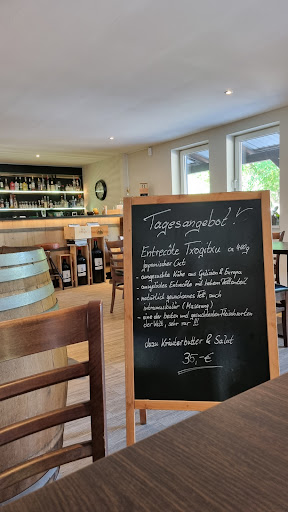 Tagesangebot!
Entrecôte Txogitxu ca 400g
japanischer Cut
- ausgesuchte Kühe aus Galizien & Europa
- ausgelöstes Entrecôte mit hohem Fettanteil
- natürlich gewachsenes Fett, auch
intramuskulär (Maserung)
- eine der besten und gesündesten Fleischsorten
der Welt, sehr rar !!!
dazu Kräuterbutter & Salat
35,-€